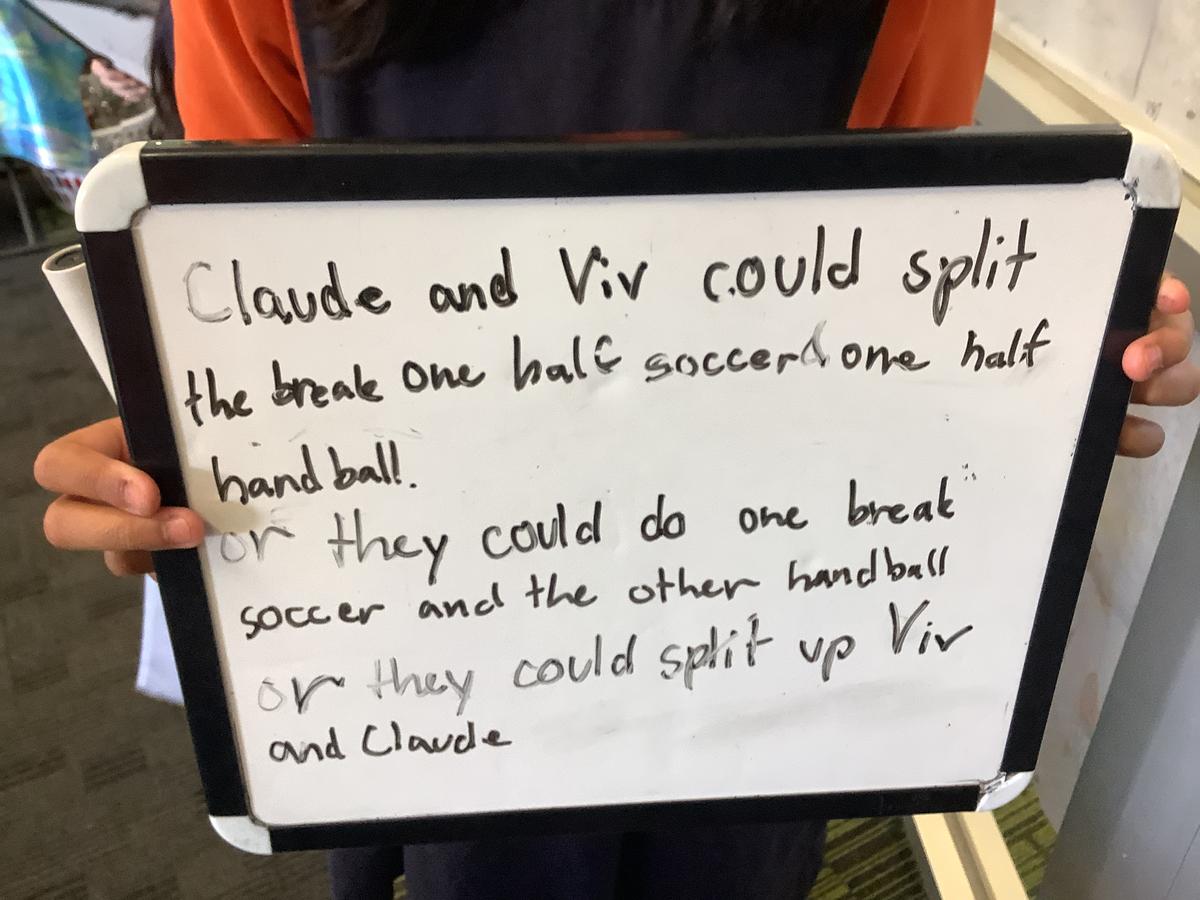 Claude and Viv could split
the break one half soccer one half
handball.
or they could do one break
soccer and the other handball
or they could split up Viv
and Claude